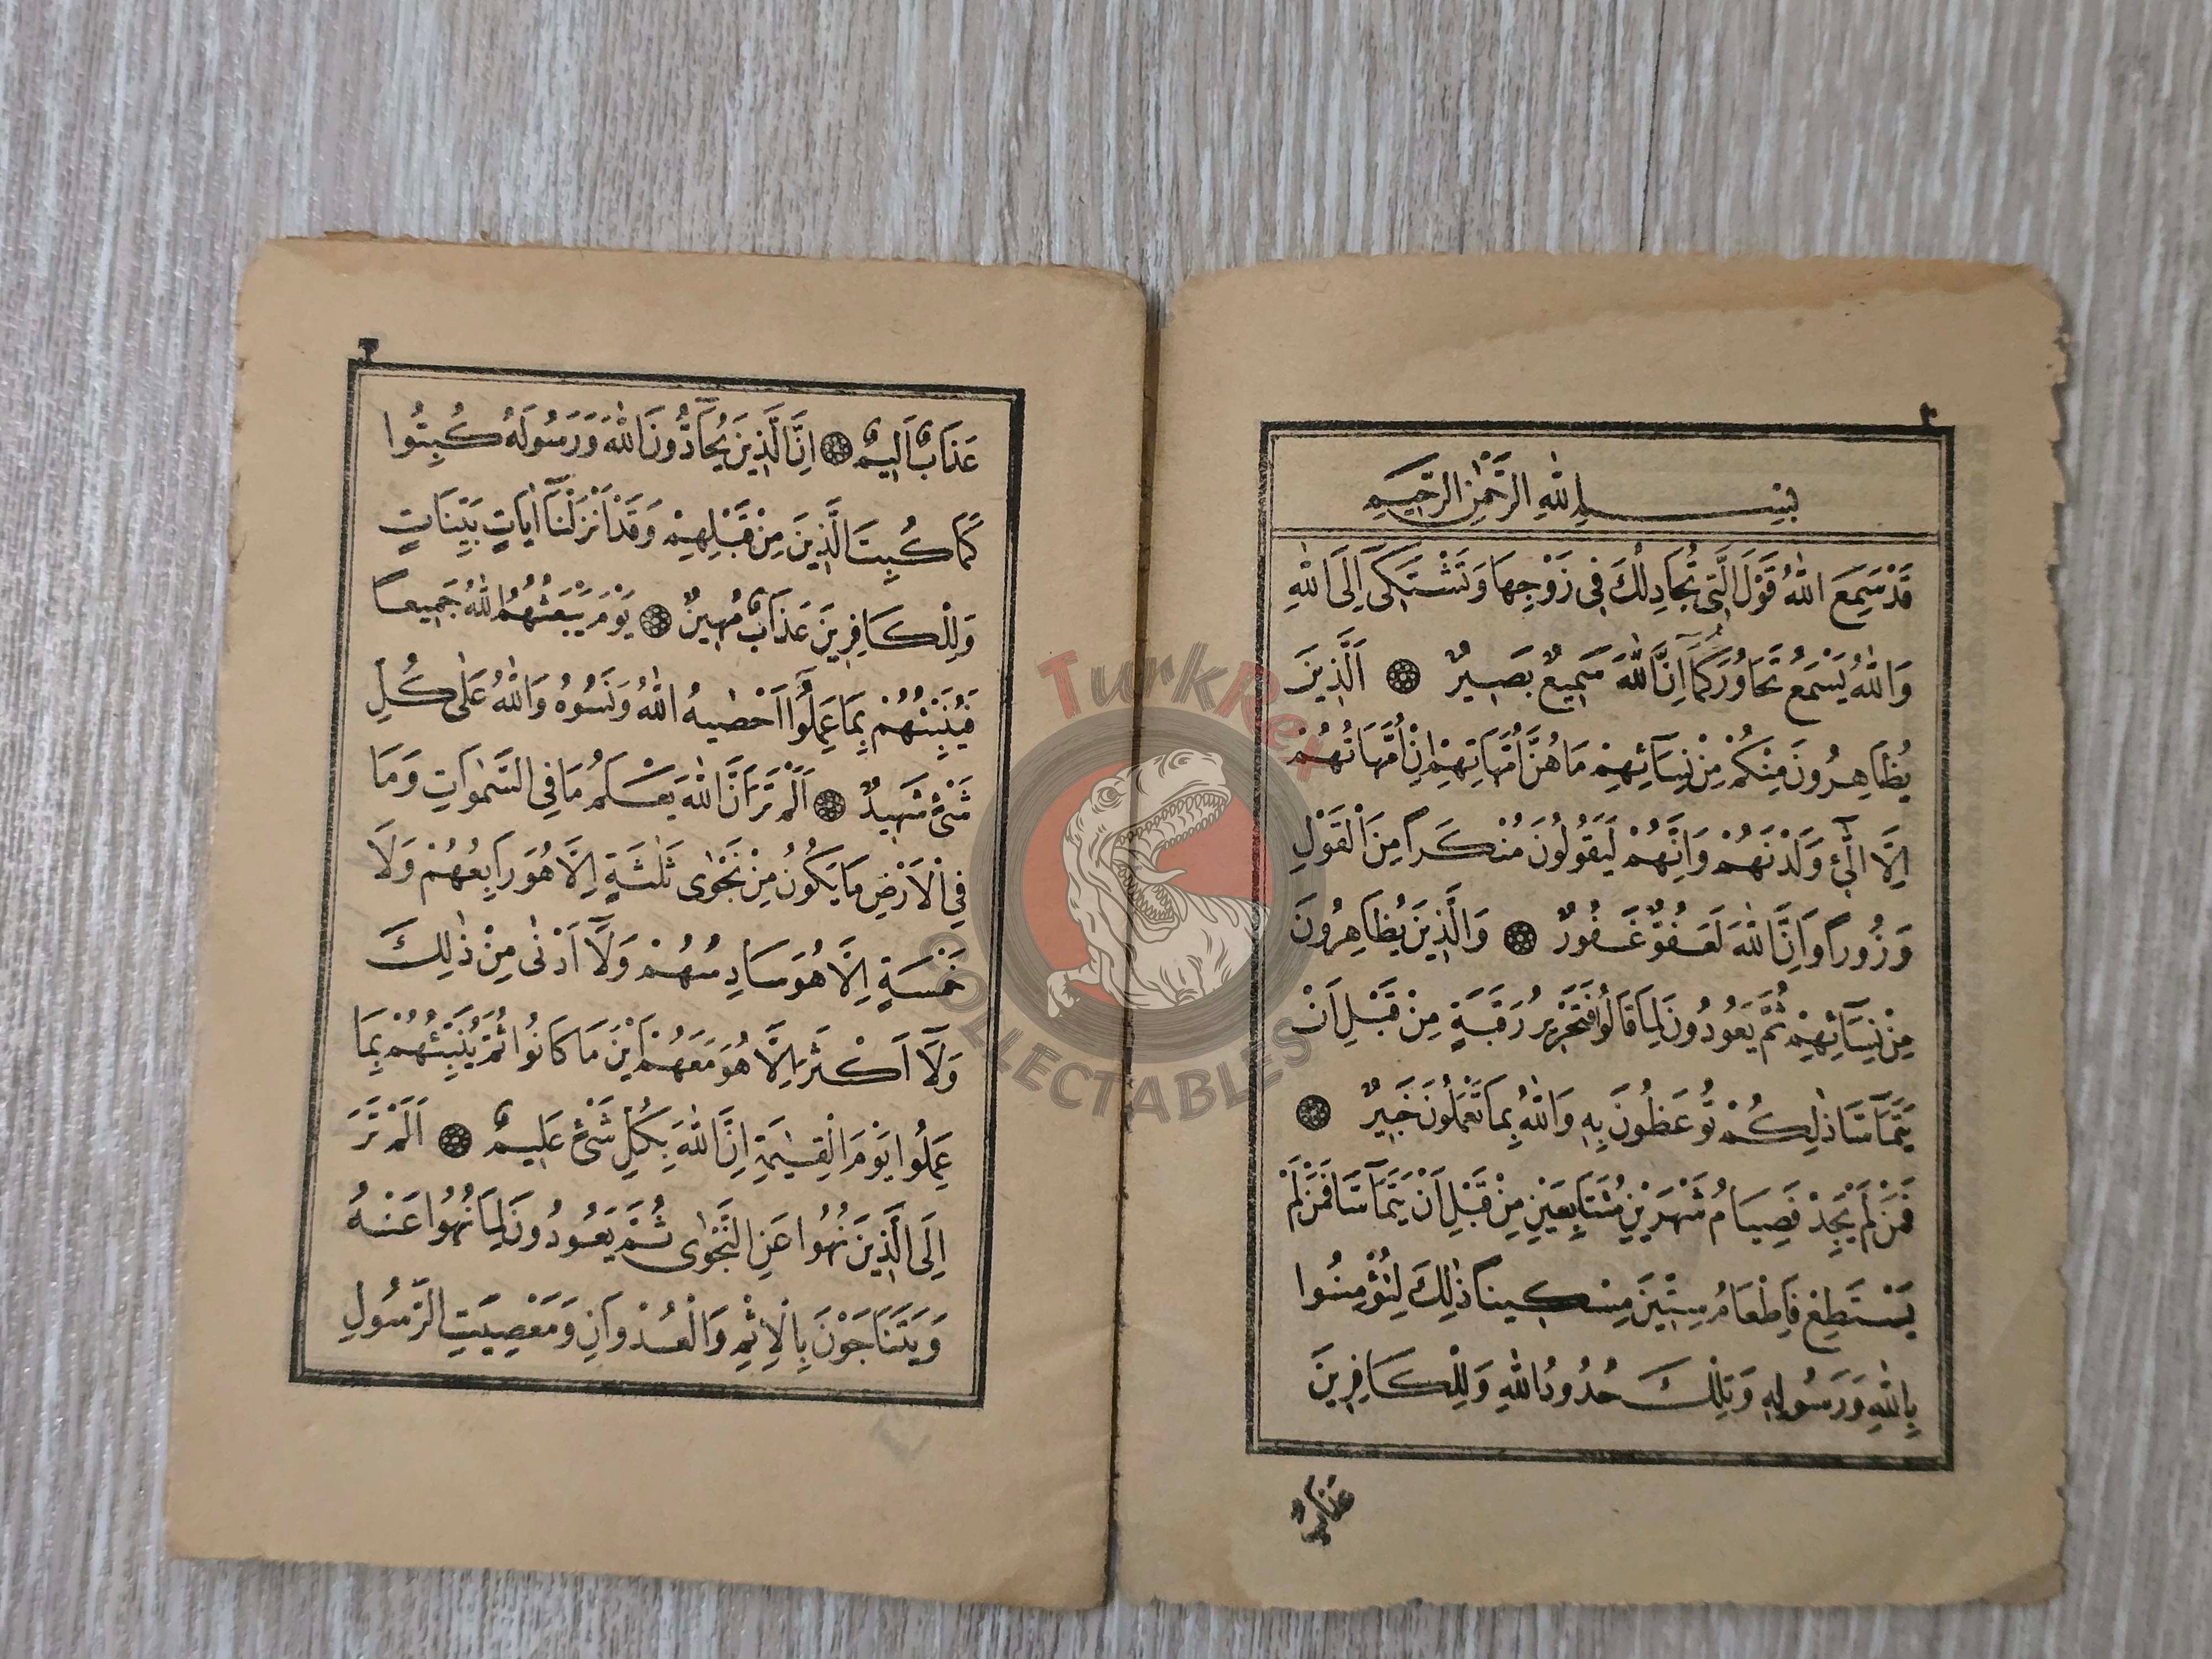 ٢
بِسْمِ اللّٰهِ الرَّحْمٰنِ الرَّحِيمِ
قَدْ سَمِعَ اللّٰهُ قَوْلَ الَّتِى تُجَادِلُكَ فِى زَوْجِهَا وَتَشْتَكِىٓ اِلَى اللّٰهِ
وَاللّٰهُ يَسْمَعُ تَحَاوُرَكُمَاۤ اِنَّ اللّٰهَ سَمِيعٌ بَصِيرٌ ۞ اَلَّذِينَ
يُظَاهِرُونَ مِنْكُمْ مِنْ نِسَآئِهِمْ مَا هُنَّ اُمَّهَاتِهِمْ اِنْ اُمَّهَاتُهُمْ
اِلَّا الّٰٓئِ وَلَدْنَهُمْ وَاِنَّهُمْ لَيَقُولُونَ مُنْكَرًا مِنَ الْقَوْلِ
وَزُورًا وَاِنَّ اللّٰهَ لَعَفُوٌّ غَفُورٌ ۞ وَالَّذِينَ يُظَاهِرُونَ
مِنْ نِسَآئِهِمْ ثُمَّ يَعُودُونَ لِمَا قَالُوا فَتَحْرِيرُ رَقَبَةٍ مِنْ قَبْلِ اَنْ
يَتَمَآسَّا ذٰلِكُمْ تُوعَظُونَ بِهِ وَاللّٰهُ بِمَا تَعْمَلُونَ خَبِيرٌ ۞
فَمَنْ لَمْ يَجِدْ فَصِيَامُ شَهْرَيْنِ مُتَتَابِعَيْنِ مِنْ قَبْلِ اَنْ يَتَمَآسَّا فَمَنْ لَمْ
يَسْتَطِعْ فَاِطْعَامُ سِتِّينَ مِسْكِينًا ذٰلِكَ لِتُؤْمِنُوا
بِاللّٰهِ وَرَسُولِهِ وَتِلْكَ حُدُودُ اللّٰهِ وَلِلْكَافِرِينَ
عَذَابٌ
٣
عَذَابٌ اَلِيمٌ ۞ اِنَّ الَّذِينَ يُحَآدُّونَ اللّٰهَ وَرَسُولَهُ كُبِتُوا
كَمَا كُبِتَ الَّذِينَ مِنْ قَبْلِهِمْ وَقَدْ اَنْزَلْنَاۤ اٰيَاتٍ بَيِّنَاتٍ
وَلِلْكَافِرِينَ عَذَابٌ مُهِينٌ ۞ يَوْمَ يَبْعَثُهُمُ اللّٰهُ جَمِيعًا
فَيُنَبِّئُهُمْ بِمَا عَمِلُوۤا اَحْصٰيهُ اللّٰهُ وَنَسُوهُ وَاللّٰهُ عَلٰى كُلِّ
شَىْءٍ شَهِيدٌ ۞ اَلَمْ تَرَ اَنَّ اللّٰهَ يَعْلَمُ مَا فِى السَّمٰوَاتِ وَمَا
فِى الْاَرْضِ مَا يَكُونُ مِنْ نَجْوٰى ثَلٰثَةٍ اِلَّا هُوَ رَابِعُهُمْ وَلَا
خَمْسَةٍ اِلَّا هُوَ سَادِسُهُمْ وَلَاۤ اَدْنٰى مِنْ ذٰلِكَ
وَلَاۤ اَكْثَرَ اِلَّا هُوَ مَعَهُمْ اَيْنَ مَا كَانُوا ثُمَّ يُنَبِّئُهُمْ بِمَا
عَمِلُوا يَوْمَ الْقِيٰمَةِ اِنَّ اللّٰهَ بِكُلِّ شَىْءٍ عَلِيمٌ ۞ اَلَمْ تَرَ
اِلَى الَّذِينَ نُهُوا عَنِ النَّجْوٰى ثُمَّ يَعُودُونَ لِمَا نُهُوا عَنْهُ
وَيَتَنَاجَوْنَ بِالْاِثْمِ وَالْعُدْوَانِ وَمَعْصِيَتِ الرَّسُولِ
TurkRex
COLLECTABLES